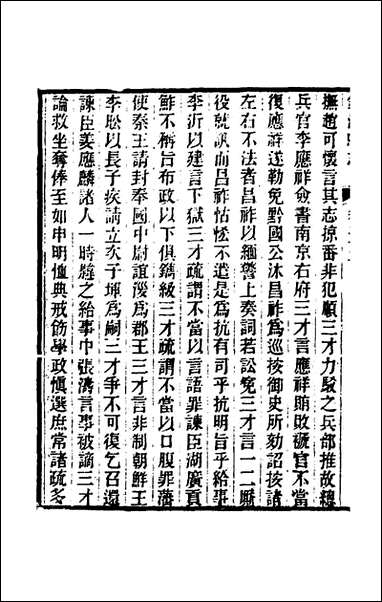 撫趙可懷言其志掠番非犯順三才力駁之兵部推故總
兵官李應祥僉書南京右府三才言應祥賄敗礮官不當
復應祥遂勒免黔國公沐昌祚為巡按御史所劾詔按諸
左右不法者昌祚以緬警上奏詞若訟冤三才言一二厮
役就訊而昌祚怙悷不遑是為抗有司乎抗明旨乎給事
李沂以建言下獄三才疏謂不當以言語罪諫臣湖廣貢
鮓不稱旨布政以下俱鐫級三才疏謂不當以口腹罪藩
使秦王請封奉國中尉誼漶為郡王三才言非制朝鮮王
李昖以長子疾請立次子琿為嗣三才爭不可復乞召還
諫臣姜應麟諸人一時韙之給事中張濤言事被謫三才
論救坐奪俸至如申明恤典戒飭學政慎選庶常諸疏多